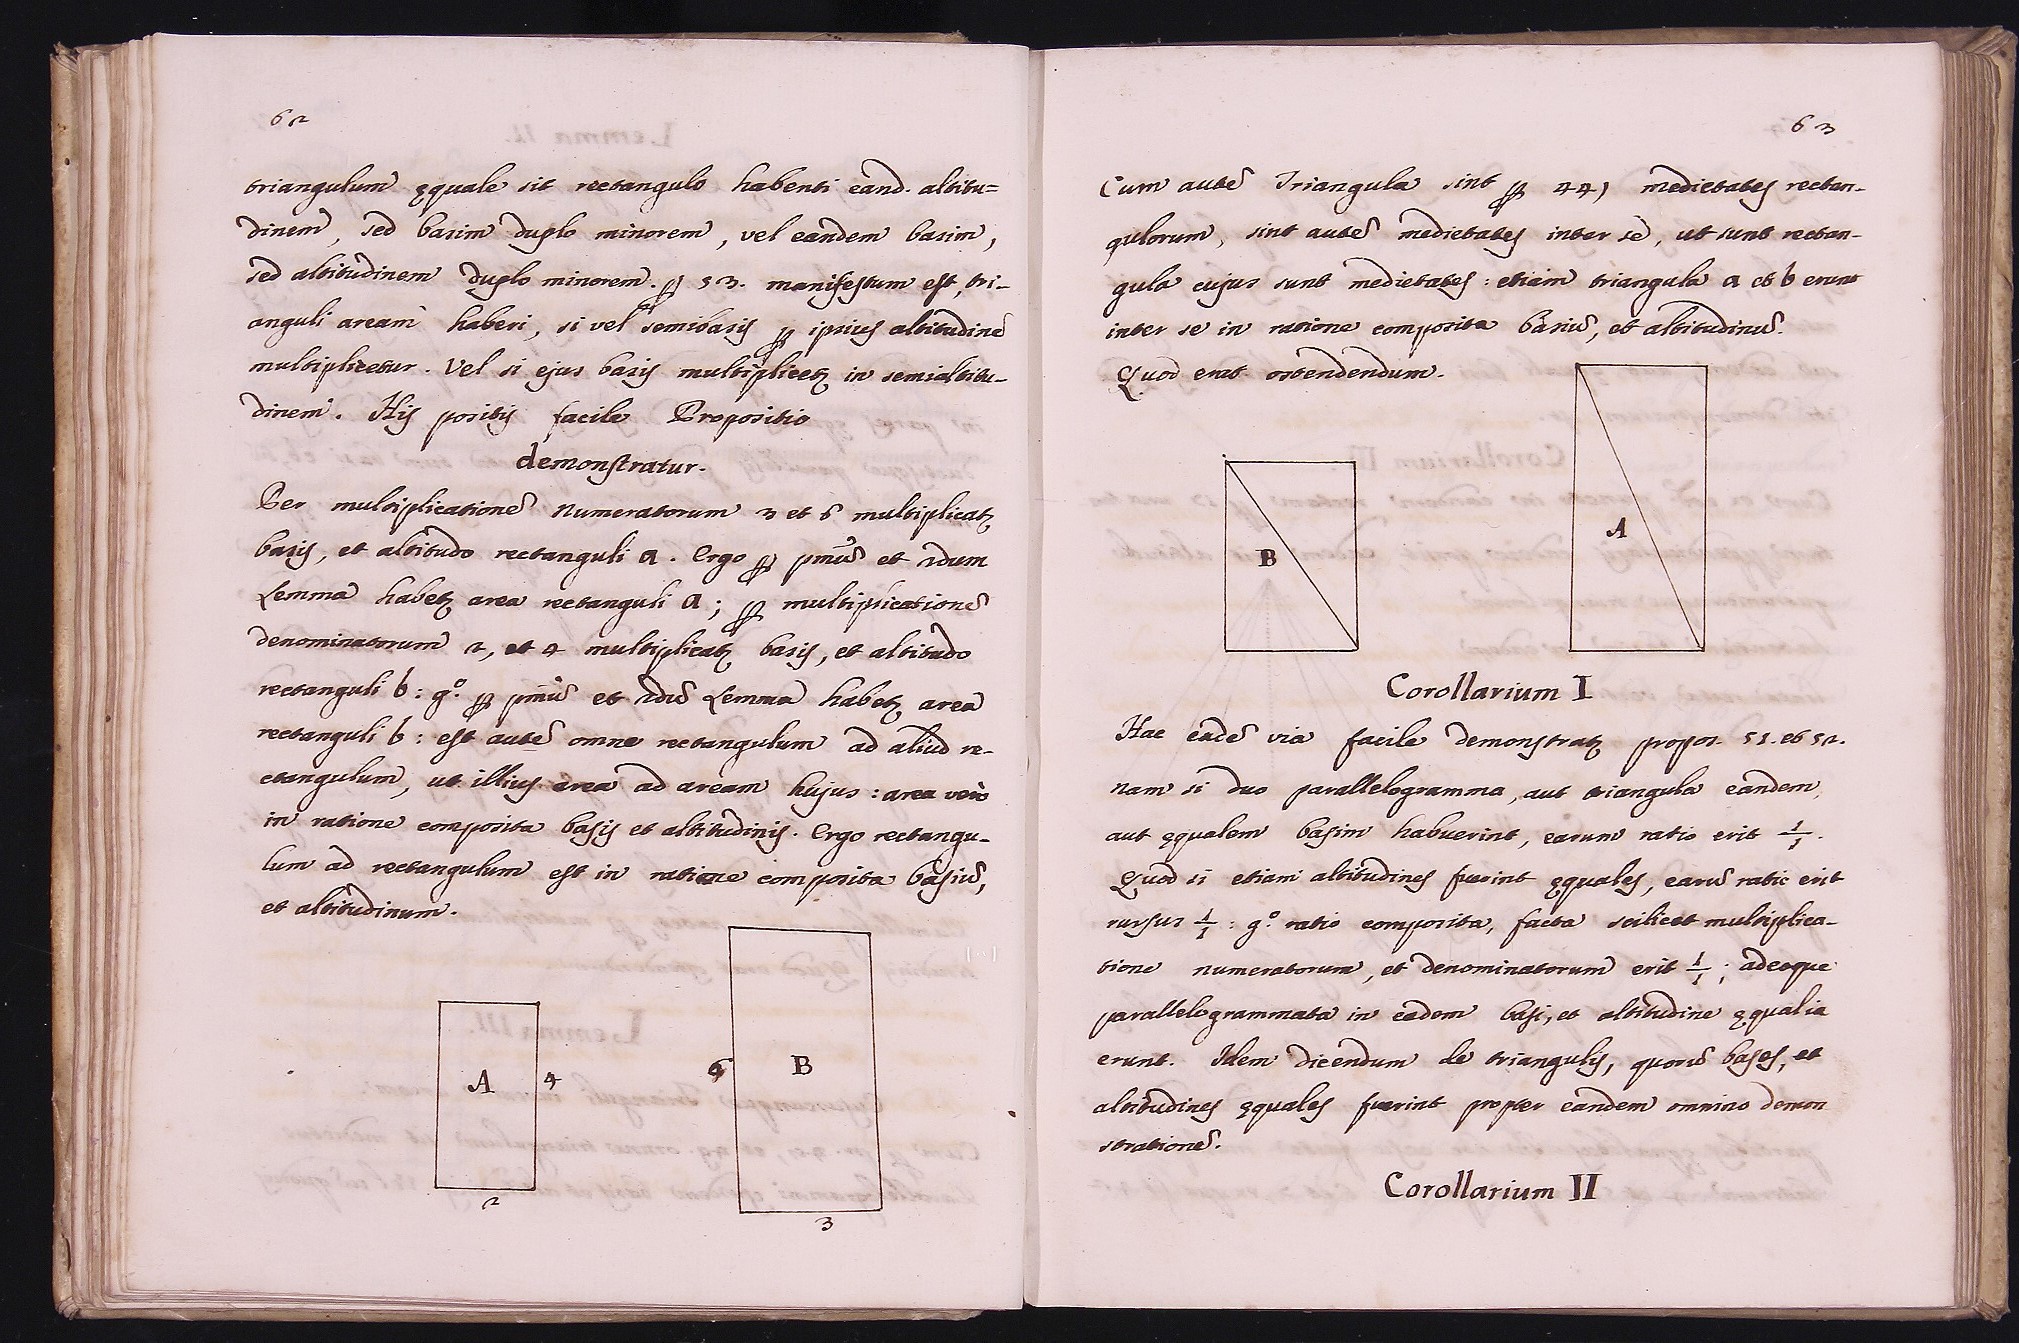 62
triangulum ęquale sit rectangulo habenti eand. altitu=
dinem, sed basim duplo minorem, vel eandem basim,
sed altitudinem duplo minorem. ꝑ 53. manifestum est, tri-
anguli aream haberi, si vel semibasis ꝑ ipsius altitudinē
multiplicetur. Vel si ejus basis multiplicetꝫ in semialtitu-
dinem. His positis facile Propositio
demonstratur.
Per multiplicationē Numeratorum 3 et 6 multiplicatꝫ
basis, et altitudo rectanguli a. Ergo ꝑ pmū et 2dum
Lemma habetꝫ area rectanguli a; ꝑ multiplicationē
denominatorum 2, et 4 multiplicatꝫ basis, et altitudo
rectanguli b: gº. ꝑ pmū et 2dū Lemma habetꝫ area
rectanguli b: est autē omne rectangulum ad aliud re-
ctangulum, ut illius area ad aream hujus: area vero
in ratione composita basis et altitudinis. Ergo rectangu-
lum ad rectangulum est in ratione composita basiū,
et altitudinum.
A
4
2
6
B
3
63
Cum autē Triangula sint ꝑ 441 medietates rectan-
gulorum, sint autē medietates inter se, ut sunt rectan-
gula cujus sunt medietates: etiam triangula a et b erunt
inter se in ratione composita basiū, et altitudinū.
Quod erat ostendendum.
B
A
Corollarium I
Hac eadē via facile demonstratꝫ propos. 51. et 52.
nam si duo parallelogramma, aut triangula eandem,
aut ęqualem basim habuerint, earum ratio erit 1/1.
Quod si etiam altitudines fuerint ęquales, earū ratio erit
rursus 1/1: gº. ratio composita, facta scilicet multiplica-
tione numeratorum, et denominatorum erit 1/1; adeoque
parallelogrammata in eadem basi, et altitudine ęqualia
erunt. Idem dicendum de triangulis, quorū bases, et
altitudines ęquales fuerint propter eandem omnino demon
strationē.
Corollarium II